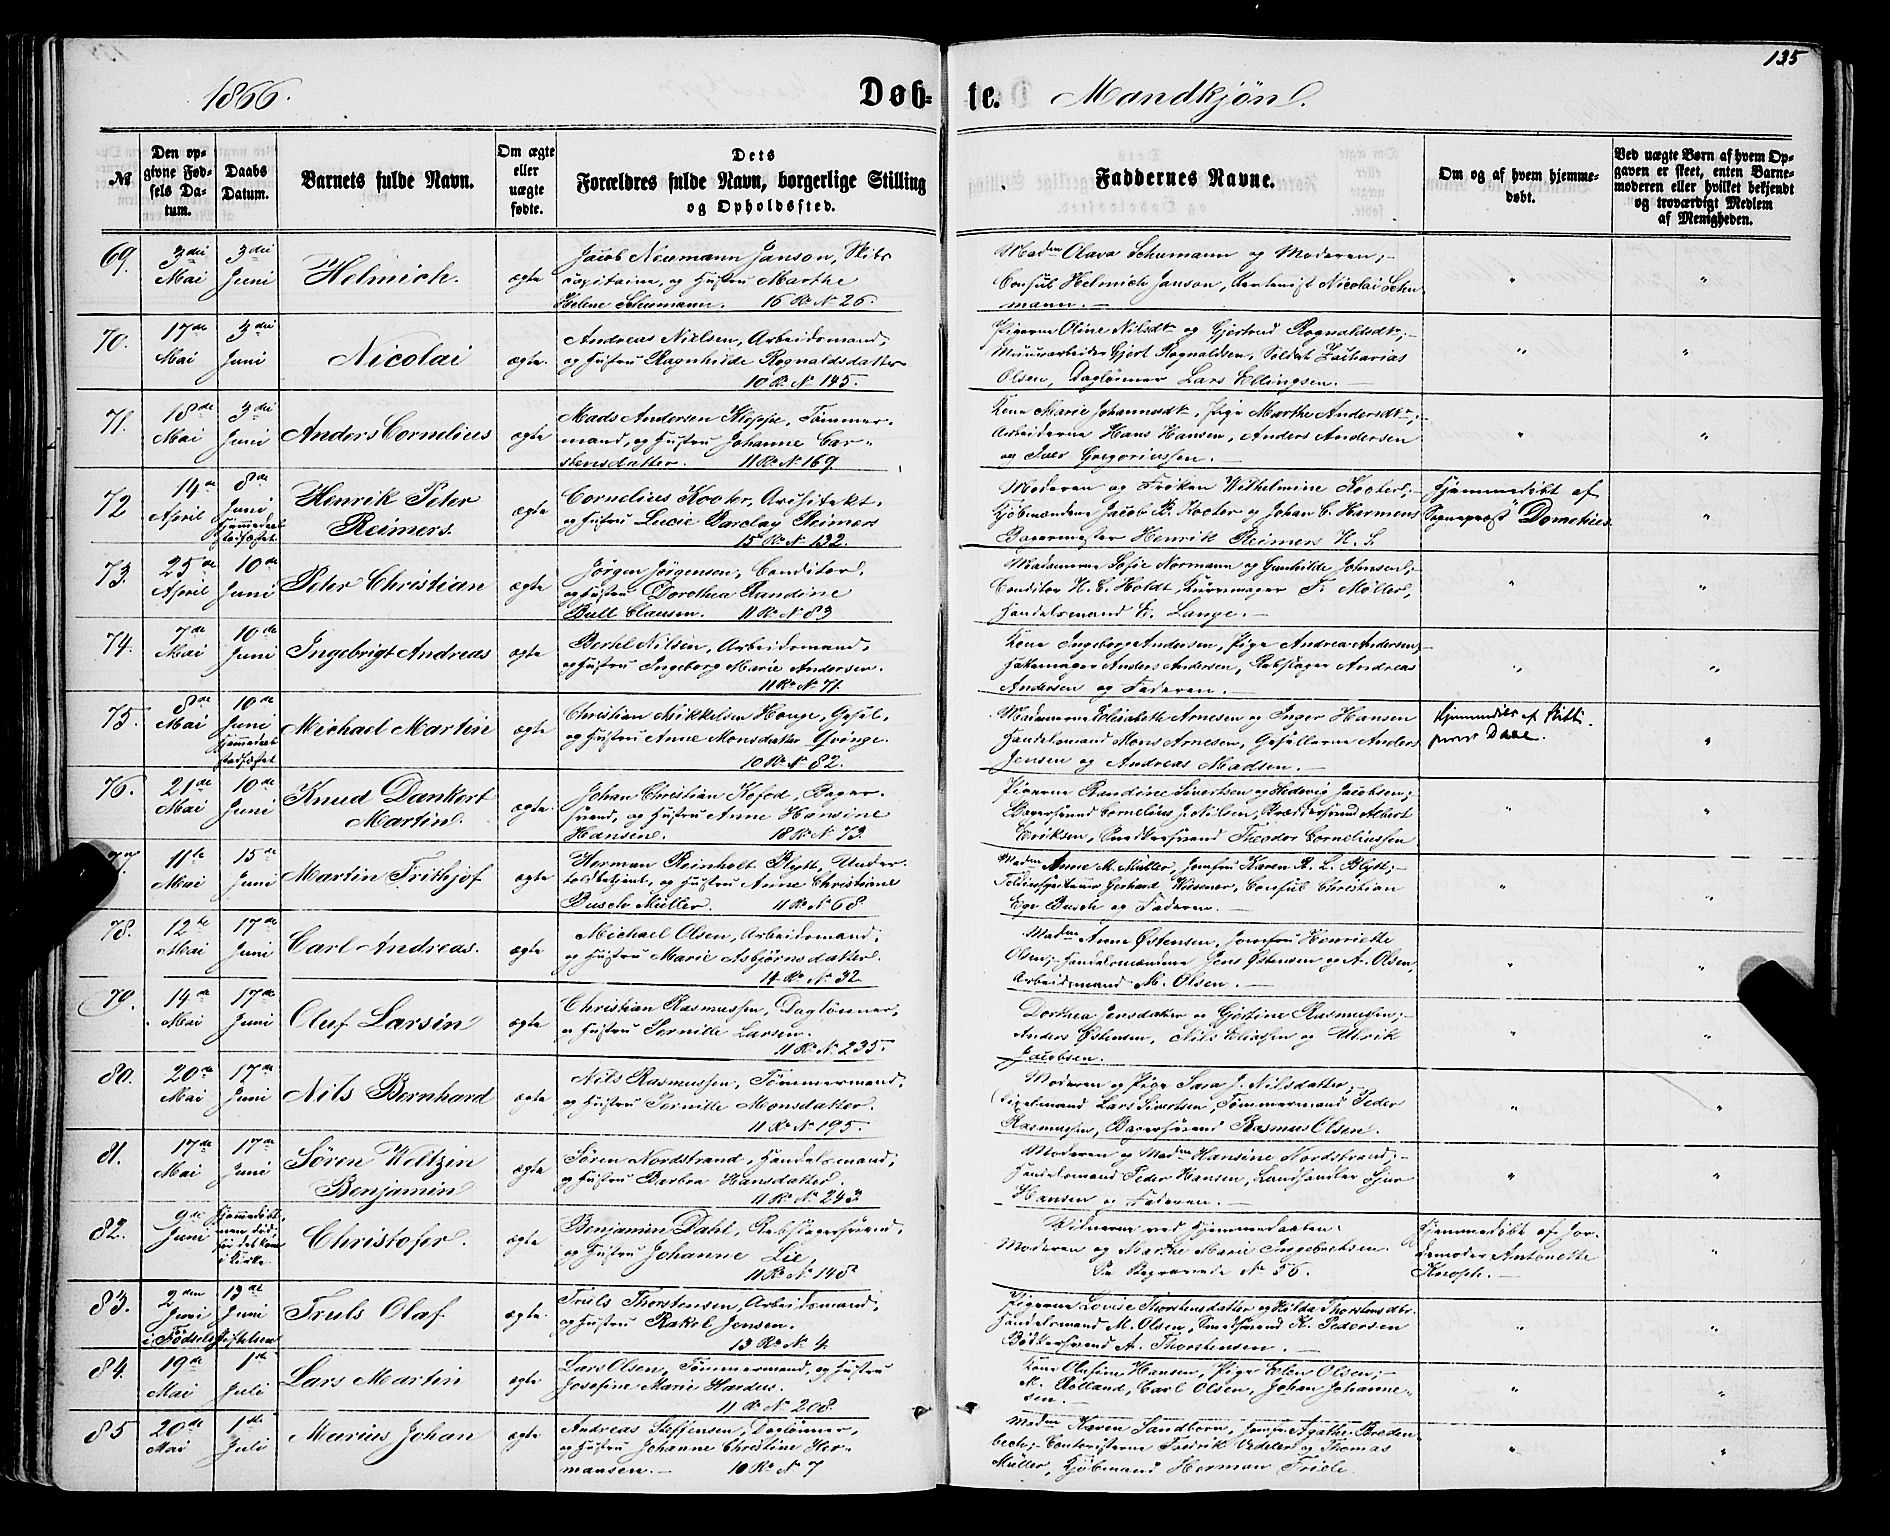 135
1866. Døb- te. Mandkjøn.
№ Den op-givne Fød-sels Da-tum. Daabs Datum. Barnets fulde Navn. Om ægte eller uægte fødte. Dets Forældres fulde Navn, borgerlige Stilling og Opholdssted. Faddernes Navne. Om og af hvem hjemme-døbt. Ved uægte Børn af hvem Op-gaven er skeet, enten Barne-moderen eller hvilket bekjendt og troværdigt Medlem af Menigheden.
69. 3die Mai 3die Juni Helmich. ægte
Jacob Neumann Janson, Skibs
capitaine, og Hustru Marthe
Helene Schumann. 16 R. N 26.
Madm Olava Schumann og Moderen;
Consul Helmich Janson, Nicolai Schu-
mann.
70. 17de Mai 3die Juni Nicolai ægte.
Andreas Nielsen, Arbeidsmand,
og Hustru Ragnhilde Rognaldsdatter
10 R. N 145.
Pigerne Oline Nilsdtr og Gjertrud Rognaldsdtr;
Muurarbeider Gjert Rognaldsen, Soldat Zacharias
Olsen, Dagleiner Lars Ellingsen.
71. 18de Mai 3die Juni Anders Cornelius ægte
Mads Andersen Kloppe, Tømmer-
mand, og Hustru Johanne Car-
stensdatter. 11 R. N 169
Kone Marie Johannesdtr, Pige Marthe Andersdtr;
Arbeiderne Hans Hansen, Anders Andersen
og Iver Gregoriussen.
72 14de April 8de Juni Hjemmedaab stadfæstet. Henrik Peter Reimers. ægte
Cornelius Kooter, Architekt,
og Hustru Lucie Barclay Reimers
15 R. N 132.
Moderen og Frøken Wilhelmine Kooter;
Kjøbmændene Jacob R. Kooter og Johan C. Harmens
Bagermester Henrik Reimers H. S.
Hjemmedøbt af
Sogneprest Dometius
73. 25de April 10de Juni Peter Christian ægte
Jørgen Jørgensen, Conditor,
og Hustru Dorothea Randine
Bull Clausen. 11 R. N 83
Madamerne Sofie Normann og Gunhilde Johnsen;
Conditor H. C. Holdt, Kurvmager F. Møller,
Handelsmand E. Lange.
74. 7de Mai 10de Juni Ingebrigt Andreas ægte
Berthl Nilsen, Arbeidsmand,
og Hustru Ingeborg Marie Andersen.
11 R. N 71.
Kone Ingeborg Andersen, Pige Andrea Andersen;
Anders Andersen, Rebslager Andreas
Andersen og Faderen.
75. 8de Mai 10de Juni Hjemmedaab stadfæstet Michael Martin ægte
Christian Mikkelsen Hauge, Gesel,
og Hustru Anne Monsdatter
10 R. N 82.
Madamerne Elisabeth Arnesen og Inger Hansen
Handelsmand Mons Arnesen, Gesellerne Anders
Jensen og Andreas Madsen.
Hjemmedøbt af Stifts-
provst Dahl.
76. 21de Mai 10de Juni Knud Dankert Martin. ægte
Johan Christian Kofod, Bager-
svend, og Hustru Anne Hansine
Hansen. 18 R. N 73.
Pigerne Randine Sivertsen og Hedevig Jacobsen;
Bagersvend Cornelius J. Nilsen, Skræddersvend Albert
Eriksen, Snedkersvend Theodor Corneliussen
77. 11te Mai 15de Juni Martin Frithjof ægte
Herman Reinholt Blytt, Under-
toldbetjent, og Hustru Anne Christiane
Busch Müller. 11 R. N 68.
Madm Anne M. Müller, Jomfru Karen R. L. Blytt;
Gerhard Wiesener, Consul Christian
Ege Busch og Faderen.
78. 12te Mai 17de Juni Carl Andreas. ægte
Michael Olsen, Arbeidsmand,
og Hustru Marie Asbjørnsdatter.
14 R. N 32
Madm Anne Østensen, Jomfru Henriette
Olsen; Handelsmændene Jens Østensen og A. Olsen,
Arbeidsmand M. Olsen.
79. 14de Mai 17de Juni Oluf Larsin ægte
Christian Rasmussen, Dagleiner,
og Hustru Pernille Larsen.
11 R. N 235.
Dorthea Jensdatter og Gjertine Rasmussen;
Anders Østensen, Nils Eliassen og Ulrik
Jacobsen.
80. 20de Mai 17de Juni Nils Bernhard ægte
Nils Rasmussen, Tømmermand,
og Hustru Pernille Monsdatter.
11 R. N 195.
Moderen og Pige Sara J. Nilsdatter;
Lars Sivertsen, Tømmermand Peder
Rasmussen, Bagersvend Rasmus Olsen.
81. 17de Mai 17de Juni Søren Weltzin Benjamin ægte
Søren Nordstrand, Handelsmand,
og Hustru Barbra Hansdatter.
11 R. N 243
Moderen og Madm Hansine Nordstrand;
Handelsmand Peder Hansen, Landhandler Sjur
Hansen og Faderen.
82. 9de Juni Hjemmedøbt, men død før det kom i Kirke Christofer. ægte
Benjamin Dahl, Rebslagersvend,
og Hustru Johanne Lie,
11 R. N 148
Vidnerne ved Hjemmedaaben:
Moderen og Marthe Marie Ingebretsen.
Se Begravede N 56.
Hjemmedøbt af Jor-
demoder Antonette
Knoph.
83. 2den Juni 13de Juni i Fødselsstiftelsen Truls Olaf ægte.
Truls Thorstensen, Arbeidsmand,
og Hustru Rakel Jensen.
13 R. N 4
Pigerne Lovise Thorstensdatter og Hilda Thorstensdtr.
Handelsmand M. Olsen, Smedsvend K. Pedersen
Bødkersvend A. Thorstensen.
84. 19de Mai 1ste Juli Lars Martin ægte
Lars Olsen, Tømmermand, og Hustru
Josefine Marie Hardus.
11 R. N 208.
Kone Olufine Hansen, Pige Elen Olsen;
M. Rolland, Carl Olsen, Johan Johanne-
sen.
85 20de Mai 1ste Juli Marius Johan ægte
Andreas Steffensen, Dagleiner,
og Hustru Johanne Christine Her-
mansen. 10 R. N 7
Madm Karen Sandborn, Jomfr. Agathe Breden-
bech; Contoristerne Fredrik Vedeler og Thomas
Müller, Kjøbmand Herman Friele.